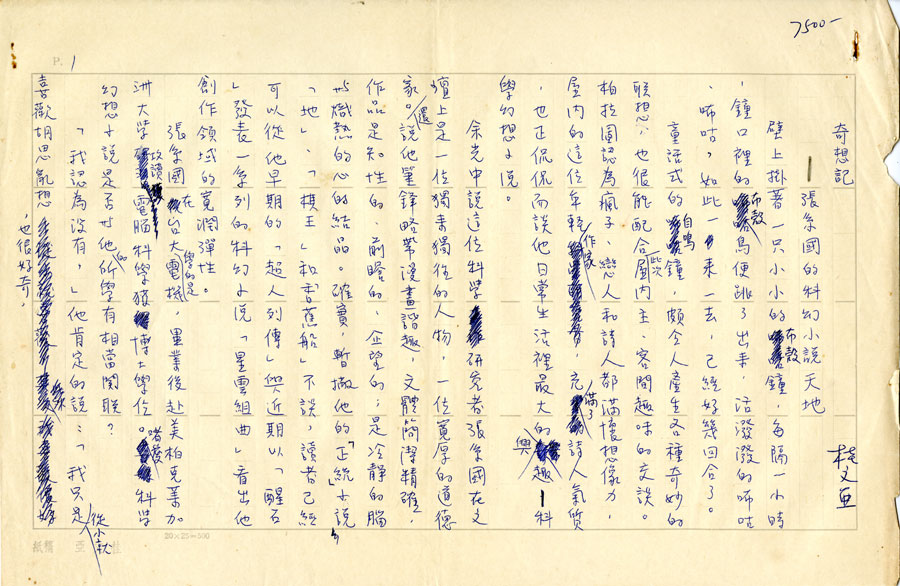 7500-
P. 1
奇想記
——張系國的科幻小說天地
桂文亞
壁上掛著一只小小的布穀鐘，每隔一小時
，鐘口裡的布穀鳥便跳了出來，活潑潑的咕咕
、咕咕，如此一來一去，已經好幾回合了。
童話式的自鳴鐘，頗令人產生各種奇妙的
聯想，也很能配合屋內主、客間此次趣味的交談。
柏拉圖認為瘋子、戀人和詩人都滿懷想像力，
屋內的這位年輕作家，充滿了詩人氣質
，也正侃侃而談他日常生活裡最大的興趣——科
學幻想小說。
余光中說這位科學研究者張系國在文
壇上是一位獨來獨往的人物，一位寬厚的道德
家。還說他筆鋒略帶漫畫諧趣，文體簡潔精確，
作品是知性的、前瞻的、企望的；是冷靜的腦
與熾熱的心的結晶。確實，暫撇他的「正統」小說
「地」、「棋王」和「香蕉船」不談，讀者已經
可以從他早期的「超人列傳」與近期以「醒石
」發表一系列的科幻小說「星雲組曲」看出他
創作領域的寬潤彈性。
張系國在台大學的是電機，畢業後赴美柏克萊加
洲大學攻讀電腦科學獲博士學位。啫愛科學
幻想小說是否與他的所學有相當關聯？
「我認為沒有，」他肯定的說：「我只是從小就
喜歡胡思亂想，也很好奇。
20×25=500